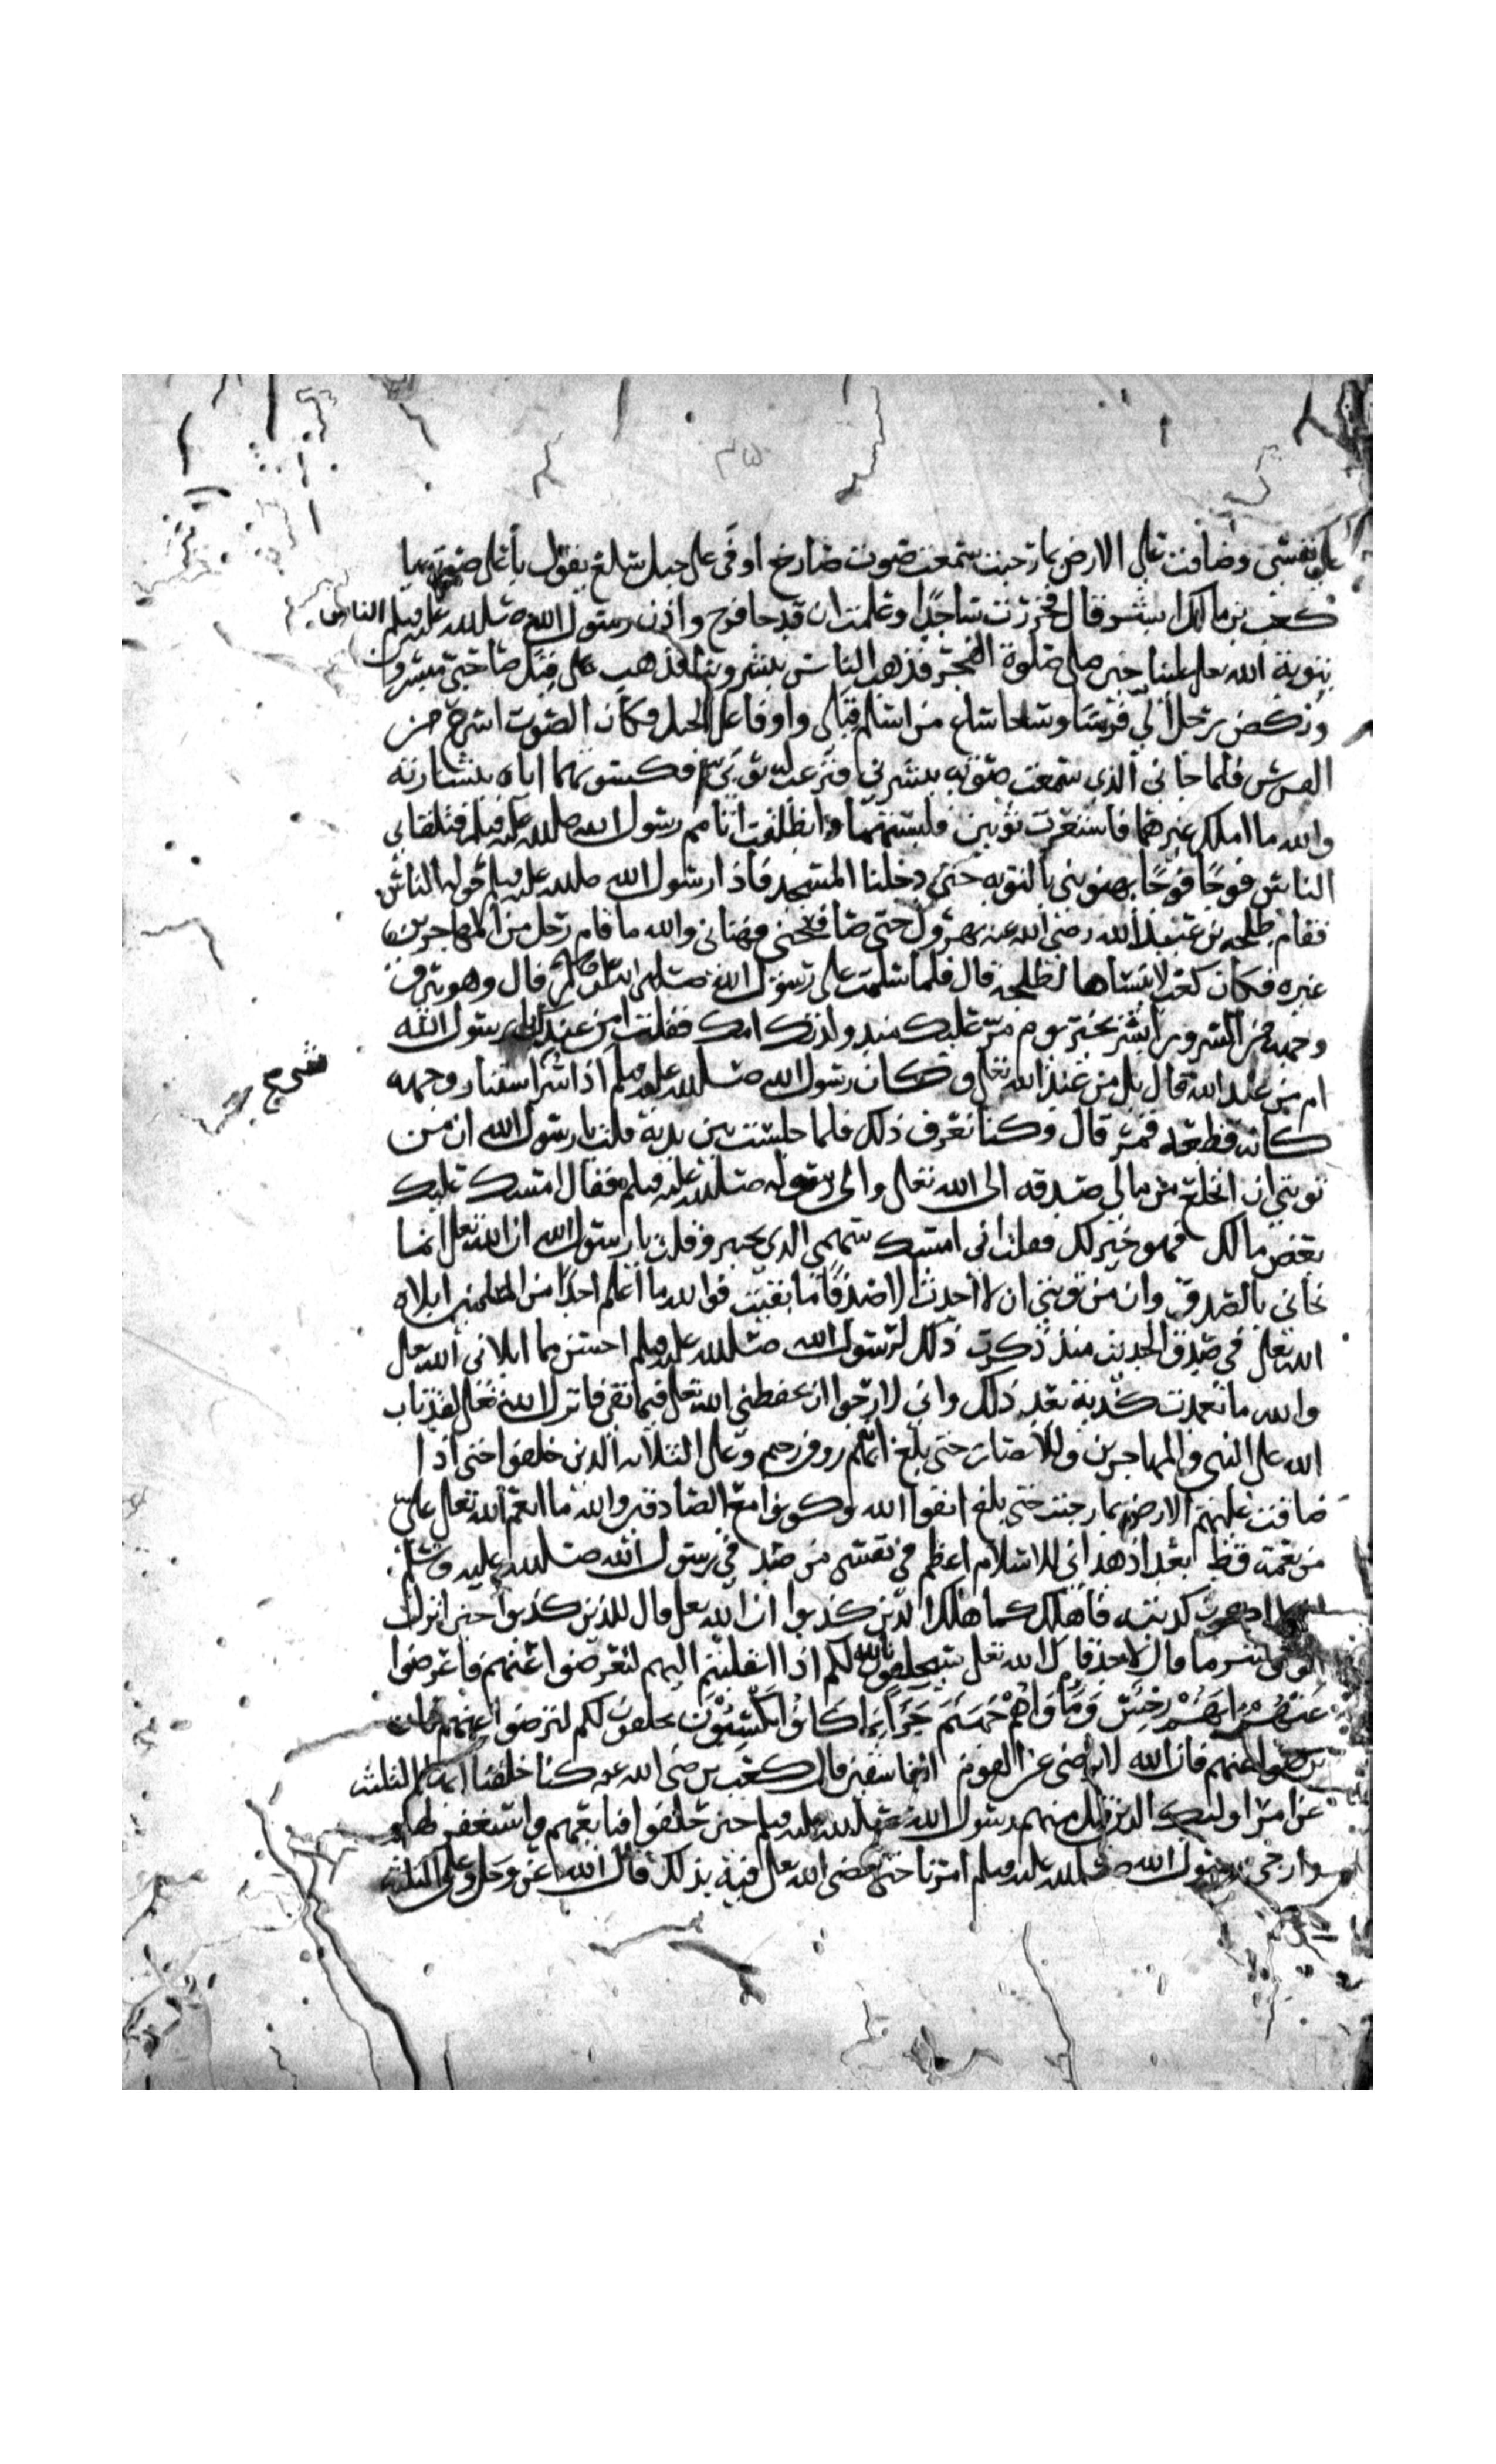 ٣٥
علي نفسي وضاقت علي الارض بما رحبت سمعت صوت صارخ اوفى على جبل سلع يقول بأعلى صوته يا
كعب بن مالك ابشر قال فخررت ساجدا وعلمت ان قد جا فرج واذن رسول الله صلى الله عليه وسلم الناس
بتوبة الله علينا حين صلى صلوة الفجر فذهب الناس يبشروننا فذهب على قبل صاحبي مبشرون
وركض رجل الي فرسا وسعا ساع من اسلم قبلي واوفا على الجبل فكان الصوت اسرع من
الفرس فلما جاني الذي سمعت صوته يبشرني فنزعت له ثوبي فكسوتهما اياه ببشارته
والله ما املك غيرهما فاستعرت ثوبين فلبستهما وانطلقت اتامم رسول الله صلى الله عليه وسلم فتلقاني
الناس فوجا فوجا يهنوني بالتوبه حتى دخلنا المسجد فاذا رسول الله صلى الله عليه وسلم حوله الناس
فقام طلحه بن عبيد الله رضي الله عنه يهرول حتى صافحني وهناني والله ما قام رجل من المهاجرين
غيره فكان كعب لا ينساها لطلحة قال فلما سلمت على رسول الله صلى الله عليه وسلم قال وهو يبرق
وجهه من السرور ابشر بخير يوم مر عليك منذ ولدتك امك فقلت امن عندك يا رسول الله
ام من عند الله قال بل من عند الله تعالى وكان رسول الله صلى الله عليه وسلم اذا سر استنار وجهه
كانه قطعه قمر قال وكنا نعرف ذلك فلما جلست بين يديه قلت يا رسول الله ان من
توبتي ان انخلع من مالي صدقه الى الله تعالى والى رسوله صلى الله عليه وسلم فقال امسك عليك
بعض مالك فهو خير لك فقلت اني امسك سهمي الذي بخيبر وقلت يا رسول الله ان الله تعالى انما
نجاني بالصدق وان من توبتي ان لا أحدث الا صدقا ما بقيت فوالله ما اعلم احدا من المسلمين ابلاه
الله تعالى في صدق الحديث منذ ذكرت ذلك لرسول الله صلى الله عليه وسلم احسن مما ابلاني الله تعالى
والله ما تعمدت كذبة بعد ذلك واني لارجوا ان يحفظني الله تعالى فيما بقي فانزل الله تعالى لقد تاب
الله على النبي والمهاجرين والانصار حتى بلغ انه بهم روف رحيم وعلى الثلاثه الذين خلفوا حتى اذا
ضاقت عليهم الارض بما رحبت حتى بلغ اتقوا الله وكونوا مع الصادقين والله ما انعم الله تعالى علي
من نعمة قط بعد اذ هداني للاسلام اعظم في نفسي من صدقي رسول الله صلى الله عليه وسلم
كذبته فاهلك كما هلك الذين كذبوا ان الله تعالى قال للذين كذبوا حين انزل
الوحي شر ما قال لاحد قال الله تعالى سيحلفون بالله لكم اذا انقلبتم اليهم لتعرضوا عنهم فاعرضوا
عنهم انهم رجس ومأواهم جهنم جزاء بما كانوا يكسبون يحلفون لكم لترضوا عنهم فان
ترضوا عنهم فان الله لا يرضى عن القوم الفاسقين قال كعب بن رضي الله عنه كنا خلفنا ايها الثلث
عن امر اوليك الذين قبل منهم رسول الله صلى الله عليه وسلم حين حلفوا فبايعهم واستغفر لهم
وارجى رسول الله صلى الله عليه وسلم امرنا حتى قضى الله تعالى فيه بذلك قال الله عز وجل وعلى الثلثة